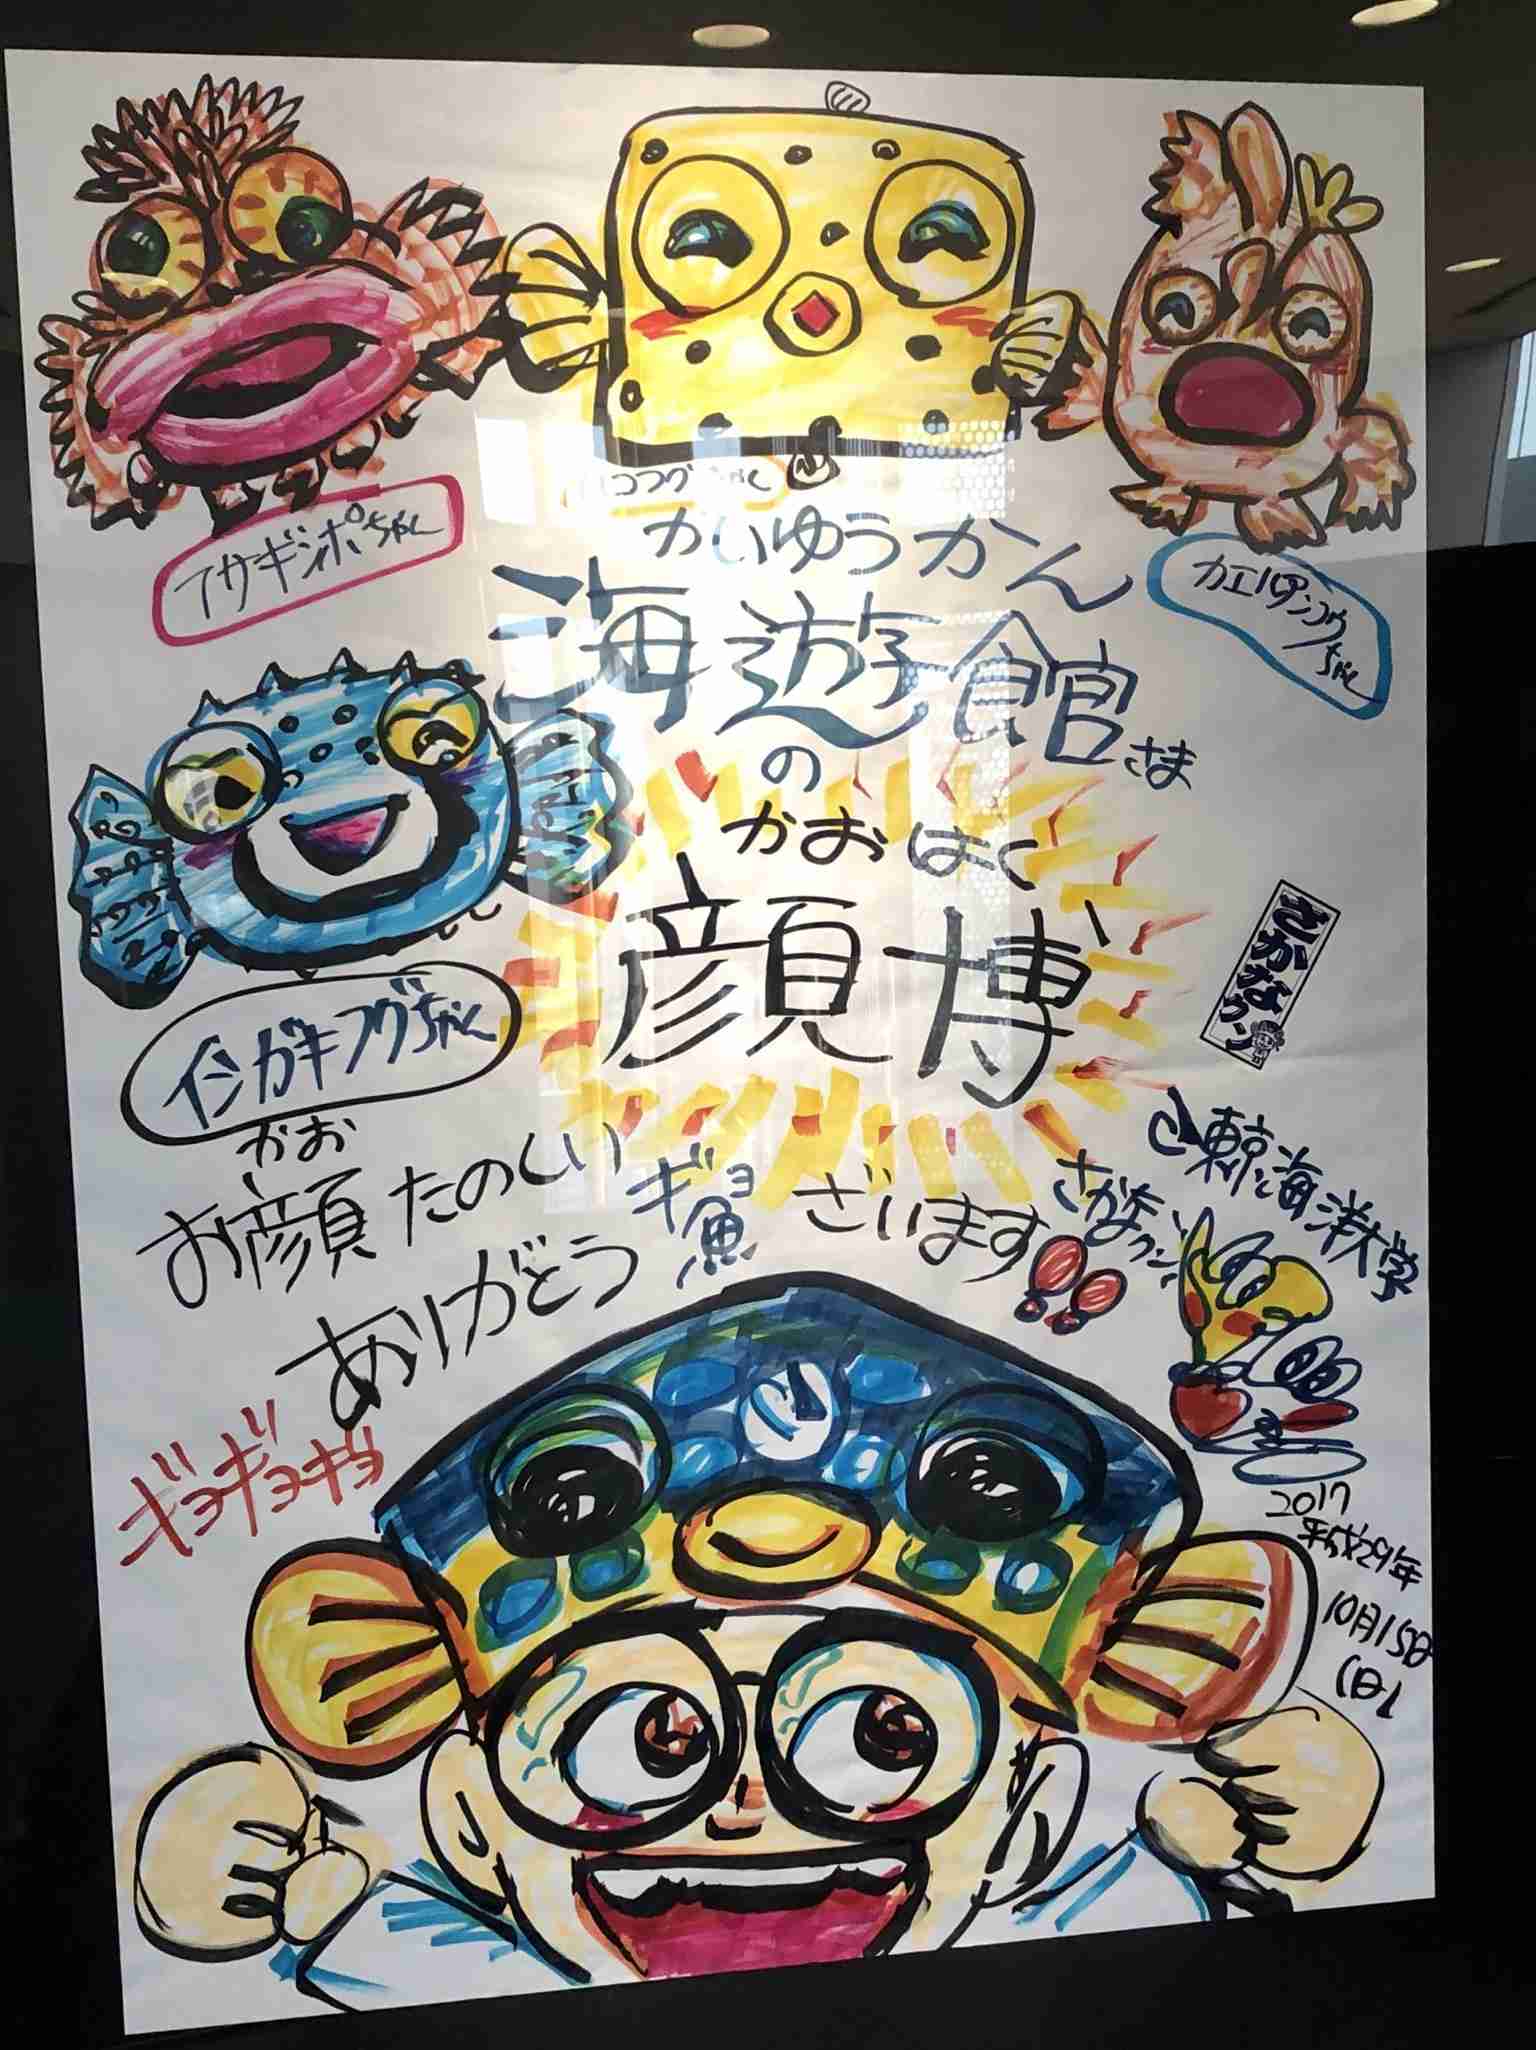 フサギンポちゃん
ハコフグちゃん
カエルアンコウちゃん
かいゆうかん
海遊館さま
の
かおはく
顔博
イシガキフグちゃん
さかなクン
かお
お顔たのしい
ありがとうギョ魚ざいます!!
ギョギョギョ
東京海洋大学
さかなクン
2017
平成29年
10月15日
(日)